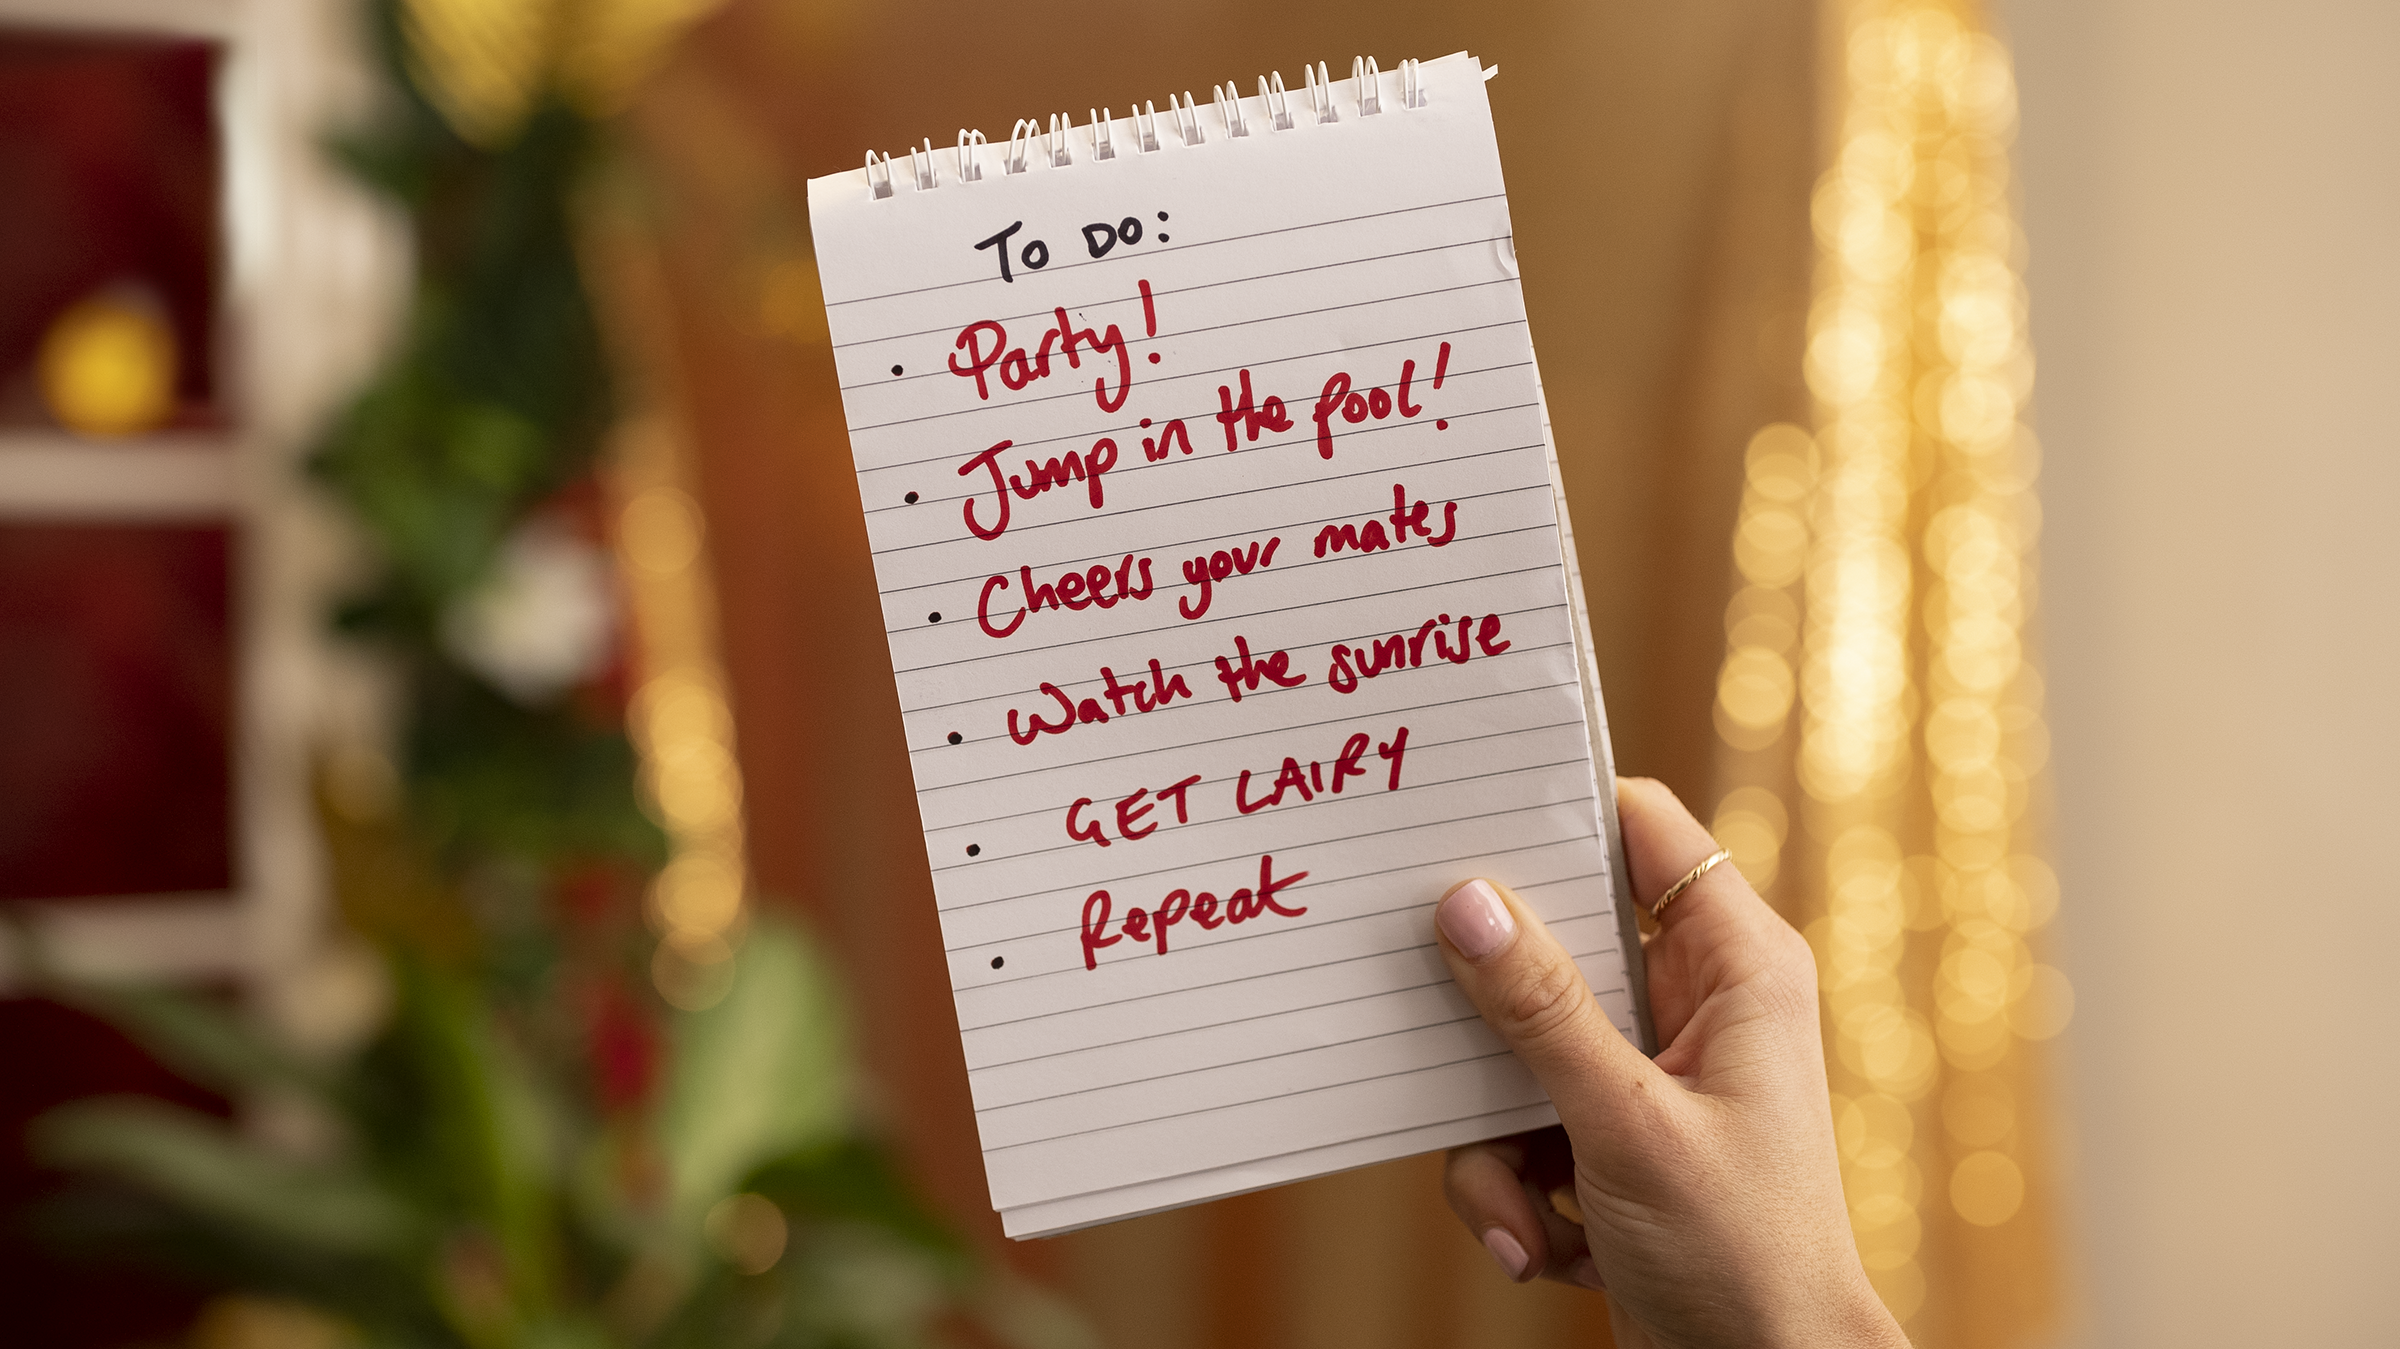 TO DO:
• Party!
• Jump in the pool!
• Cheers your mates
• Watch the sunrise
• GET LAIRY
• Repeat